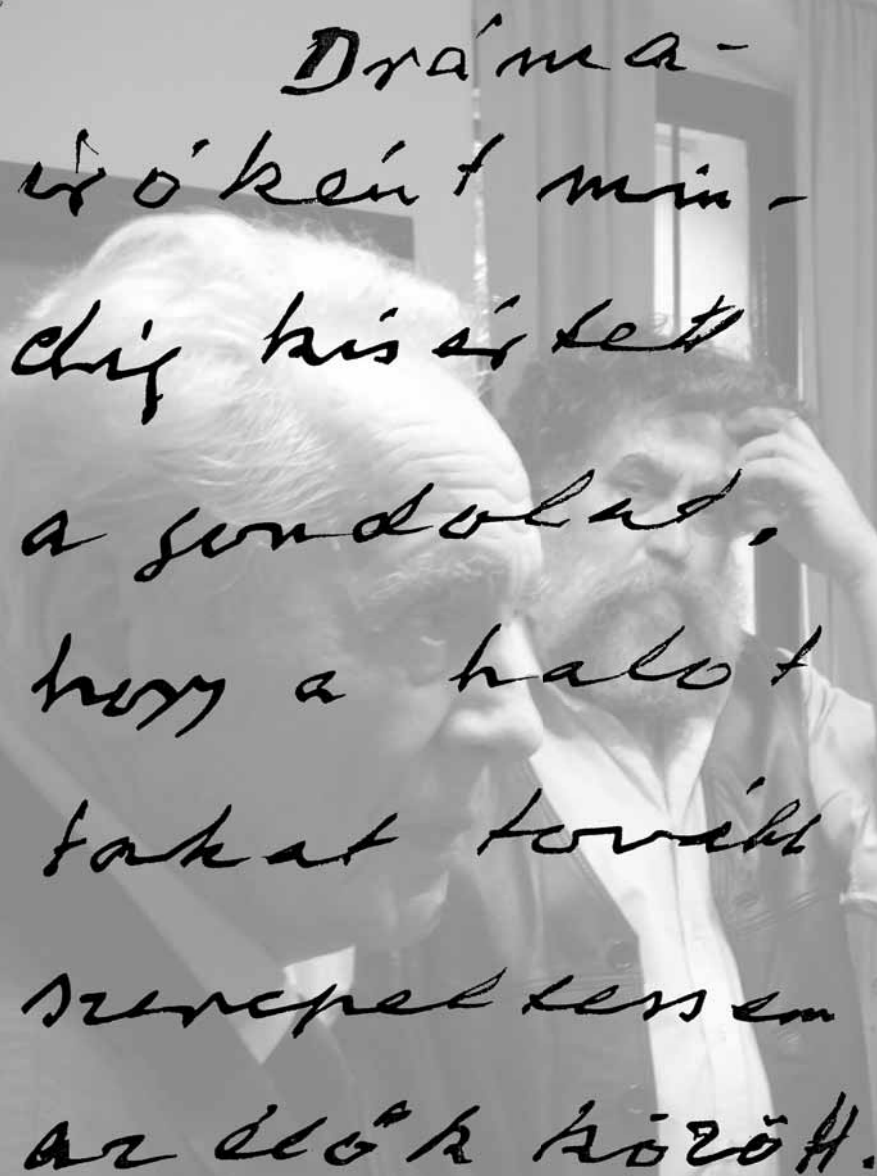 Dráma-
íróként min-
dig kísértett
a gondolat,
hogy a halot
takat tovább
szerepeltessem
az élők között.